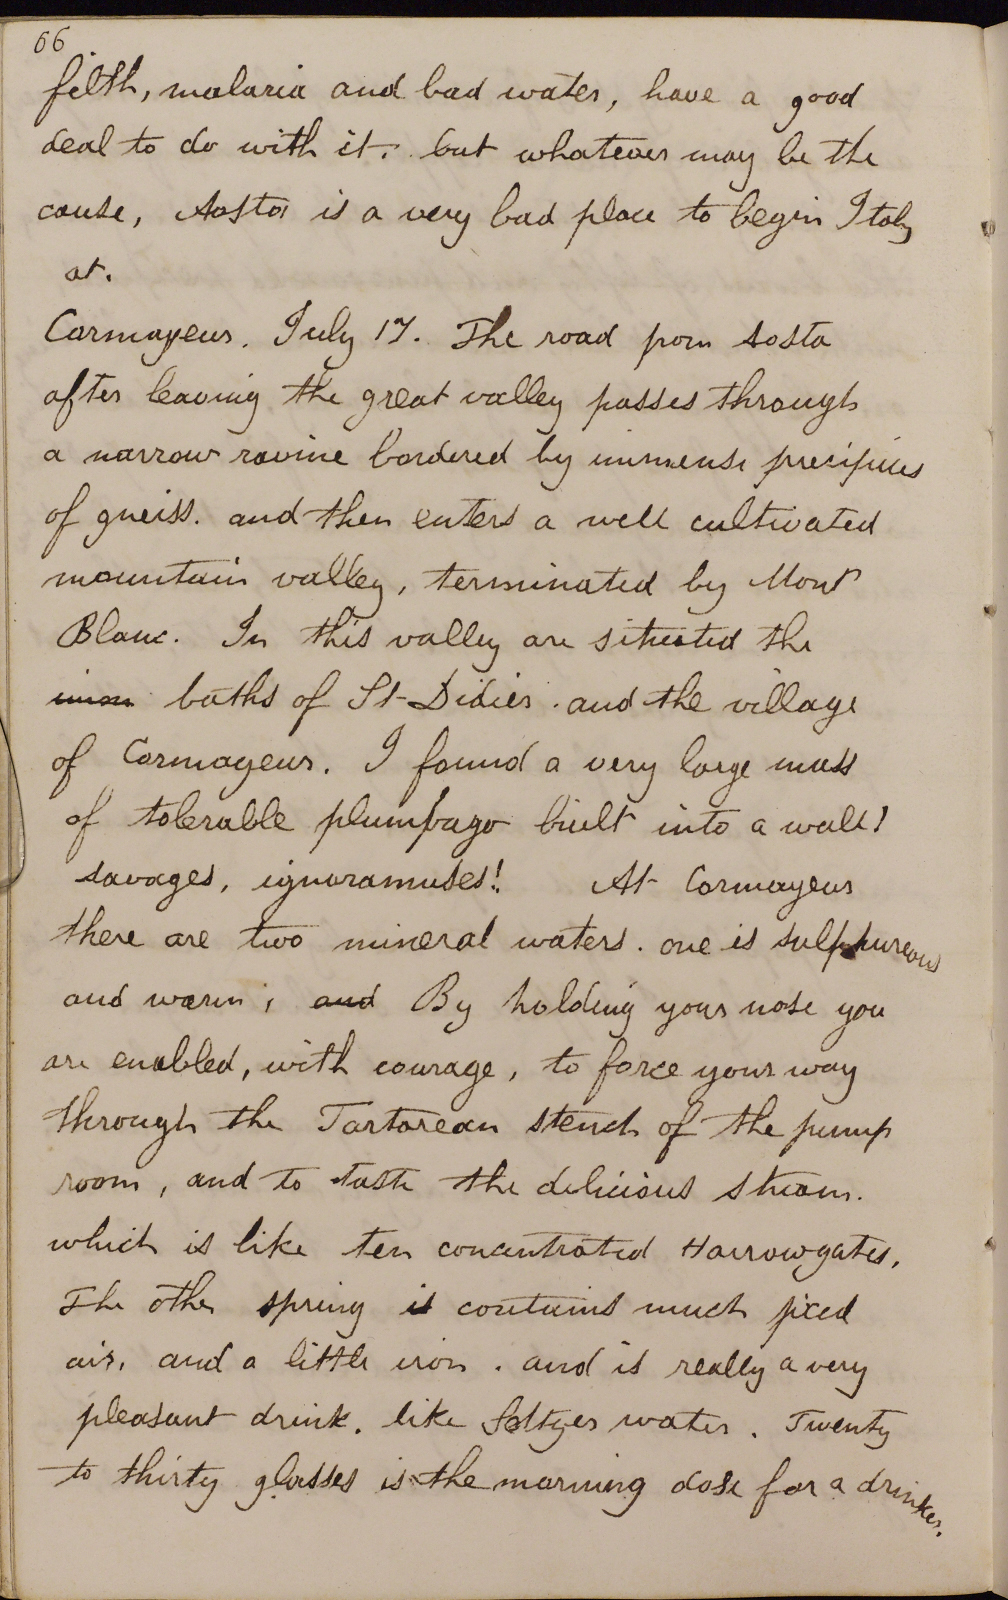 66
filth, malaria and bad water, have a good
deal to do with it. but whatever may be the
cause, Aosta is a very bad place to begin Italy
at.
Cormayeur. July 17. The road from Aosta
after leaving the great valley passes through
a narrow ravine bordered by immense precipices
of gneiss. and then enters a well cultivated
mountain valley, terminated by Mont
Blanc. In this valley are situated the
baths of St Didier. and the village
of Cormayeur. I found a very large mass
of tolerable plumbago built into a wall!
savages, ignoramuses!! At Cormayeur
there are two mineral waters. one is sulphureous
and warm; and By holding your nose you
are enabled, with courage, to force your way
through the Tartarean stench of the pump
room, and to taste the delicious stream.
which is like ten concentrated Harrowgates.
The other spring is contains much fixed
air, and a little iron. and is really a very
pleasant drink. like Seltzer water. Twenty
to thirty glasses is the morning dose for a drinker.